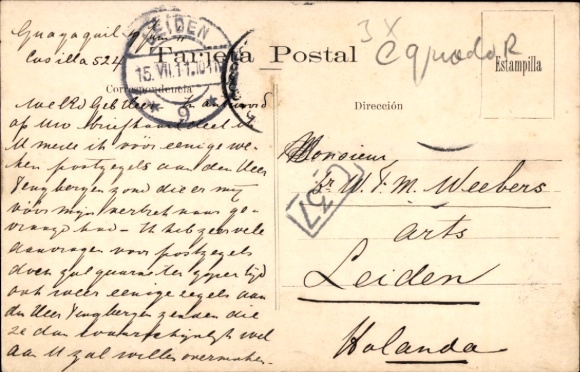 Guayaquil
Casilla 524
LEIDEN
15.VII.11.10-11
9
Tarjeta Postal
3X
EquadoR
Estampilla
Correspondencia
Dirección
WelEd Geb Heer. In antwoord
op Uw briefkaart deel ik
U mede ik vóór eenige we-
ken postzegels aan den Heer
Tengbergen zond die er mij
vóór mijn vertrek naar ge-
vraagd had – Ik heb zeer vele
aanvragen voor postzegels
doch zal gaarne ter zijner tijd
ook weer eenige zegels aan
den Heer Tengbergen zenden die
ze dan waarschijnlijk wel
aan U zal willen overmaken.
Monsieur
Dr. W. F. M. Weebers
arts
Leiden
Holanda
137